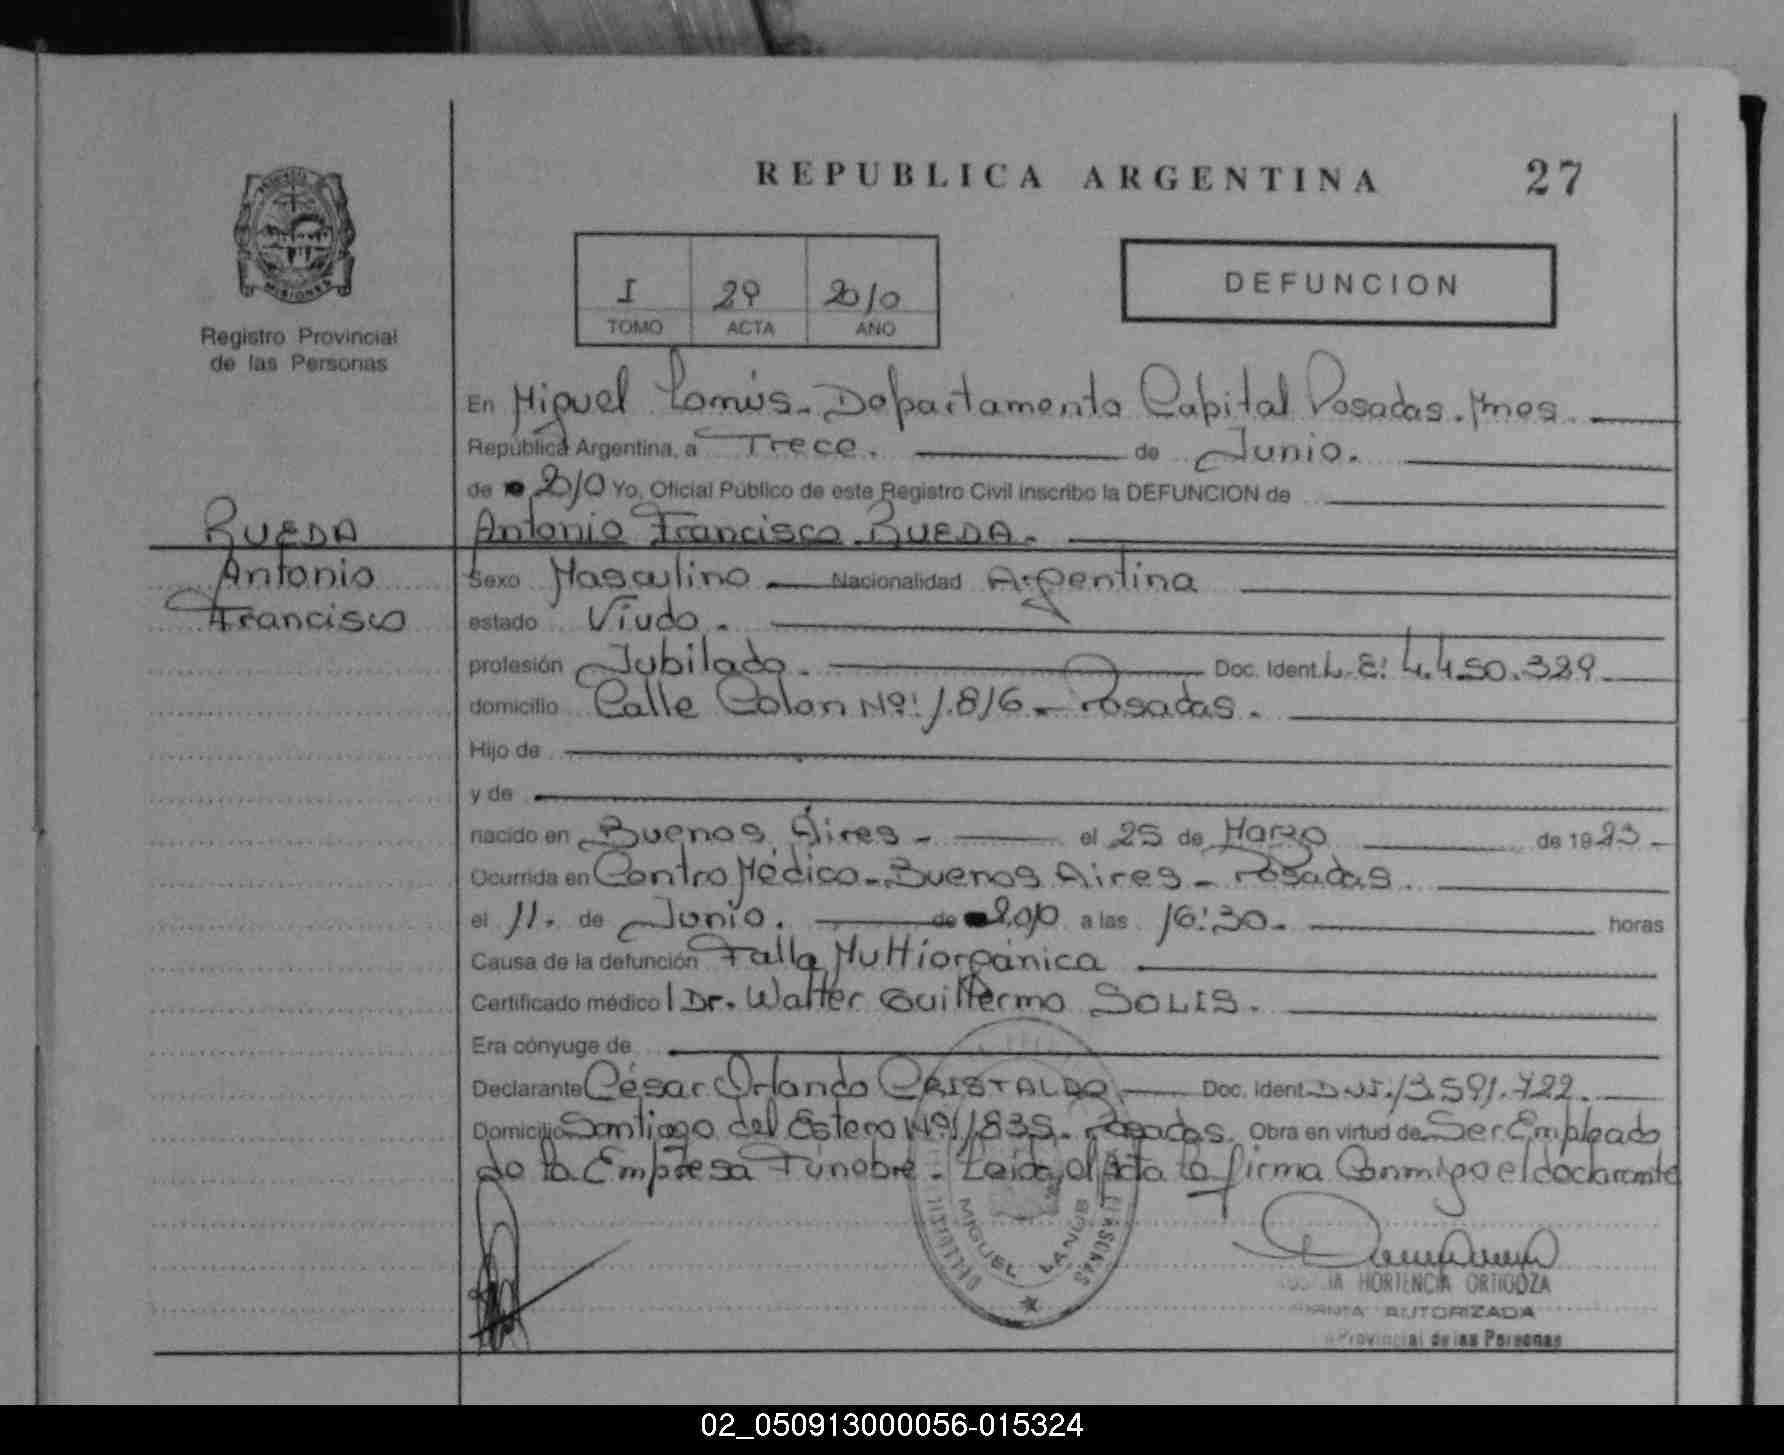 REPUBLICA ARGENTINA 27
MISIONES
Registro Provincial
de las Personas
I 29 2010
TOMO ACTA AÑO
DEFUNCION
En Miguel Lanús - Departamento Capital Posadas. Mnes.
República Argentina, a Trece. de Junio.
de 2010 Yo, Oficial Público de este Registro Civil inscribo la DEFUNCION de
RUEDA
Antonio
Francisco
Antonio Francisco RUEDA.
Sexo Masculino Nacionalidad Argentina
estado Viudo.
profesión Jubilado. Doc. Ident. L.E: 4.450.329.
domicilio Calle Colon Nº: 1.816 - Posadas.
Hijo de
y de
nacido en Buenos Aires - el 25 de Marzo de 1923 -
Ocurrida en Centro Médico - Buenos Aires - Posadas.
el 11. de Junio. de 2010 a las 16:30. horas
Causa de la defunción Falla Multiorgánica
Certificado médico Dr. Walter Guillermo SOLIS.
Era cónyuge de
Declarante César Orlando CRISTALDO Doc. Ident. D.N.I. 13.591.722.
Domicilio Santiago del Estero Nº 1835 - Posadas. Obra en virtud de Ser Empleado
de la Empresa Fúnebre - Leida el Acta la firma Conmigo el declarante
MIGUEL LANUS
PERSONAS
HORTENCIA ORTIGOZA
AUTORIZADA
Provincial de las Personas
02_050913000056-015324